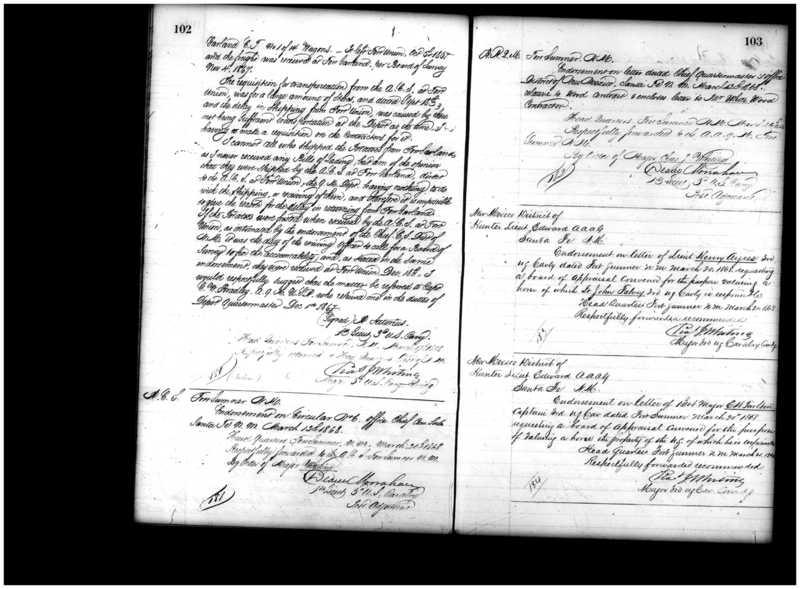 102
Garland C.T. No 1 of 14 Wagons. - It left Fort Union, 1867
and the freight was received at Fort Garland, per Board of Survey
Nov 4th 1867.
The requisition for transportation from the A.C.S. at Fort
Union, was for a large amount of Stores, and dated Sept 18th
and the delay in shipping from Fort Union, was caused by there
not being sufficient transportation at the Depot at the time,
having to make a requisition on the contractors for it.
I cannot tell who shipped the Potatoes from Fort Garland,
as I never received any Bills of Lading, but am of the opinion
that they were shipped by the A.C.S. at Fort Garland, direct
to the A.C.S. at Fort Union, the Q.M. Dept. having nothing to do
with the shipping, or receiving of them, and therefore it is impossible
to give the reasons for the delay in receiving from Fort Garland.
If the Potatoes were frosted when received by the A.C.S. at Fort
Union, as evidenced by the endorsement of the Chief C.S. Dist of
N.M. it was the duty of the receiving officer to call for a Board of
Survey to fix the accountability, and, as stated in the same
endorsement, they were received at Fort Union Dec. 1st. I
would respectfully suggest that the matter be referred to Capt
who relieved me in the duties of
Depot Quartermaster Dec. 1st 1867.
Signed
1st Lieut, 3rd U.S. Cavy.
Head Quarters Fort Sumner, N.M. March 1868
Respectfully returned
Chas J Whiting
Major 3rd U.S. Cavy Comdg
Fort Sumner N.M.
Endorsement on Circular No 6. office Chief Com Subs
Santa Fe N.M. March 13th 1868.
Head Quarters Fort Sumner, N.M. March 20th 1868
Respectfully forwarded to the A.C.S. Fort Sumner N.M.
By Order of Major Whiting
Deane Monahan
1st Lieut, 3rd U.S. Cavalry
Post Adjutant
181
103
A.A.Q.M. Fort Sumner N.M.
Endorsement on letter dated Chief Quartermasters Office
District of New Mexico, Santa Fe N.M. March 13th 1868.
relative to Wood Contract & encloses letter to Mr Wood
Contractor.
Head Quarters Fort Sumner N.M.
Respectfully forwarded to the A.A.Q.M. Fort
Sumner N.M.
By Order of Major Chas J Whiting
Deane Monahan
1st Lieut, 3rd U.S. Cavy
Post Adjutant
182
New Mexico District of
Hunter Lieut, Edward A A A G
Santa Fe N.M.
Endorsement on letter of Lieut Henry Ayres 3rd
U.S. Cavly dated Fort Sumner N.M. March 20 1868 requesting
a board of Appraisal Convened for the purpose valuing a
horse of which Lt John Falvey 3rd U.S. Cavly is responsible
Head Quarters Fort Sumner N.M. March 20 1868
Respectfully forwarded recommended
Chas J Whiting
Major 3rd U.S. Cavalry Comdg
183
New Mexico District of
Hunter Lieut Edward A A A G
Santa Fe N.M.
Endorsement on letter of Bvt Major
Captain 3rd U.S. Cav dated Fort Sumner March 20th 1868
requesting a board of Appraisal Convened for the purpose
of valuing a horse the property of the U.S. of which he is responsible
Head Quarters Fort Sumner N.M. March 20 1868
Respectfully forwarded recommended
Chas J Whiting
Major 3rd U.S. Cav. Comdg
184